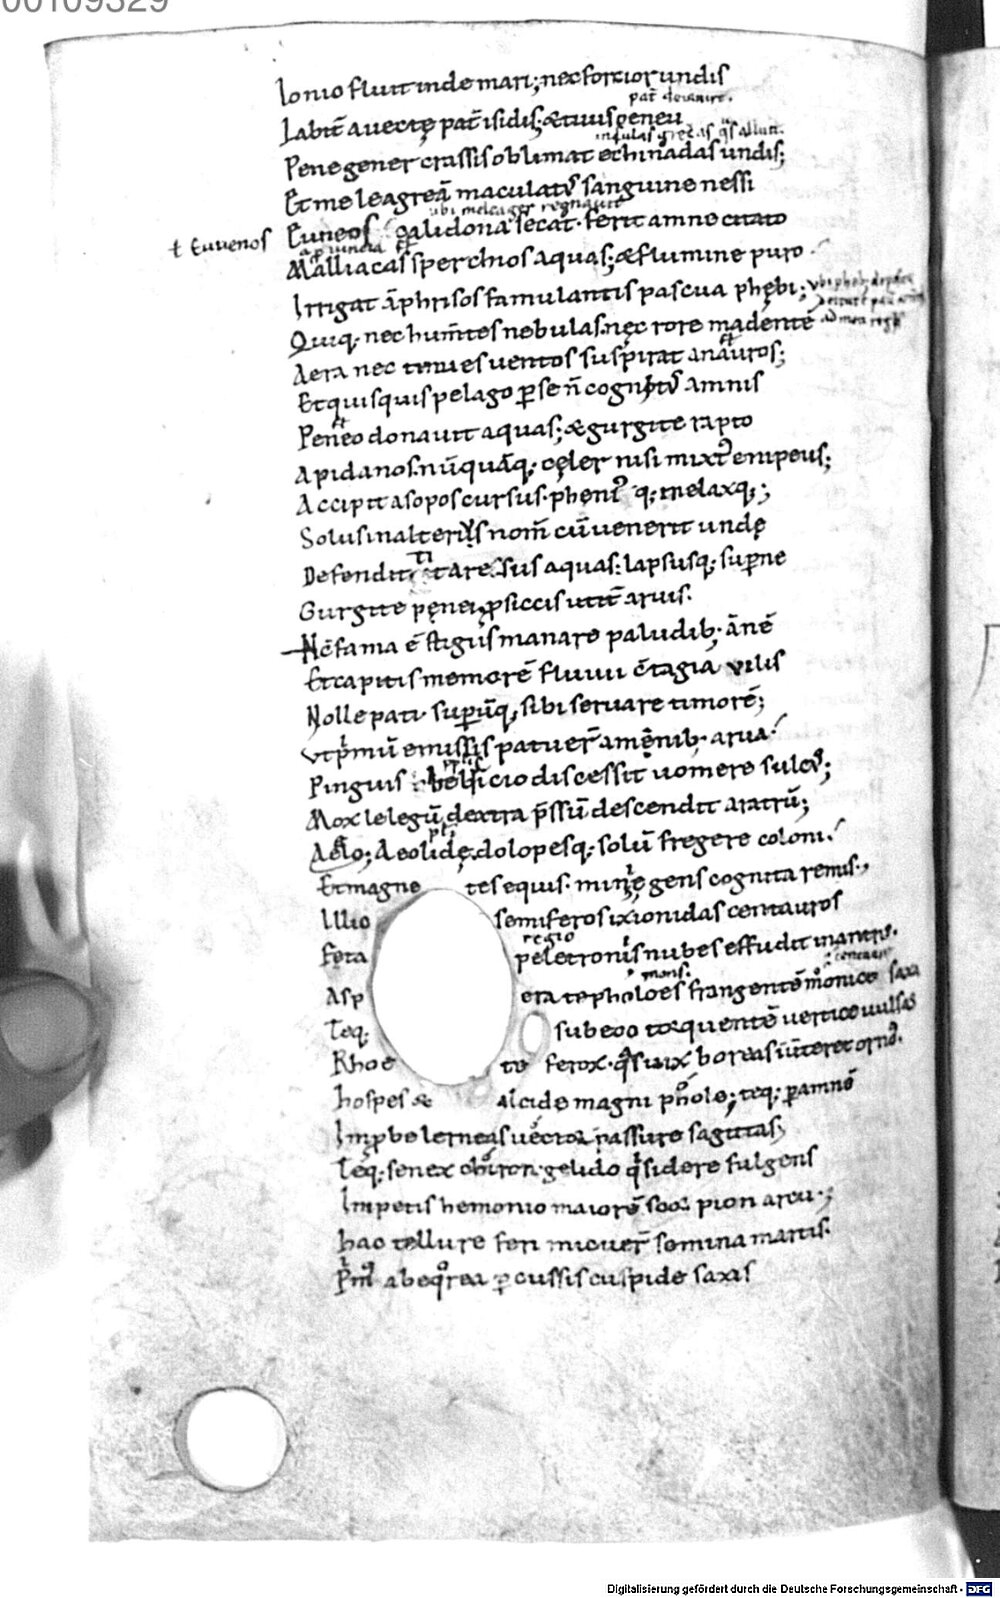 00109329
Ionio fluit inde mari; nec forcior undis
pat̄ deianire.
Labit̄ auectę pat̄ isidis; & tuus oeneu
insulas grecas q̄s alluit.
Pene gener crassis oblimat echinadas undis;
Et meleagreā maculatꝰ sanguine nessi
ubi meleager regnauit
ł Euuenos Euneos calidona secat. ferit amne citato
Malliacas sperchios aquas; & flumine puro
Irrigat āphrisos famulantis pascua phębi;
Quiq; nec humētes nebulas. nęc rore madentē
Aera nec tenues uentos suspirat anauros;
Et quisquis pelago ꝑ se n̄ cognitꝰ amnis
Peneo donauit aquas; & gurgite rapto
Apidanos. nūquāq; cęler nisi mixtꝰ enipeus;
Accipit asopos cursus. phęnix q; melaxq;;
Solus in alterius nom̄ cū uenerit undę
Defendit titaresus aquas; lapsusq; supne
Gurgite pęnei ꝓ siccis utit̄ aruis.
Nc̄ fama ē stigiis manare paludib; ānē
Et capitis memorē fluuii c̄tagia uilis
Nolle pati. superūq; sibi seruare timorē;
Vt pͥmū emissis patuer̄ amēnib; arua
Pinguis bebricio discessit uomere sulcꝰ;
Mox lelegū dextra p̄ssū descendit aratrū;
Aeolidę dolopesq; solū fregere coloni.
Et magne tes equis. minyę gens cognita remis.
Illic semiferos ixionidas centauros
regio
Fęta peletroniis nubes effudit in antris.
mons.
Asp era te pholoes frangentē monice saxa
Teq; sub eoo torquentē uertice uulsas
Rhoe te ferox. q̄s uix boreas īuerteret ornꝰ.
hospes & alcide magni phole; teq; ꝑ amnē
Improbe lerneas uector passure sagittas;
Teq; senex chiron. gelido qͥ sidere fulgens
Impetis hemonio maiorē scorpion arcu.;
hac tellure feri micuer̄ semina martis.
Pͥmꝰ ab eqͦrea ꝑcussis cuspide saxis
Digitalisierung gefördert durch die Deutsche Forschungsgemeinschaft - DFG